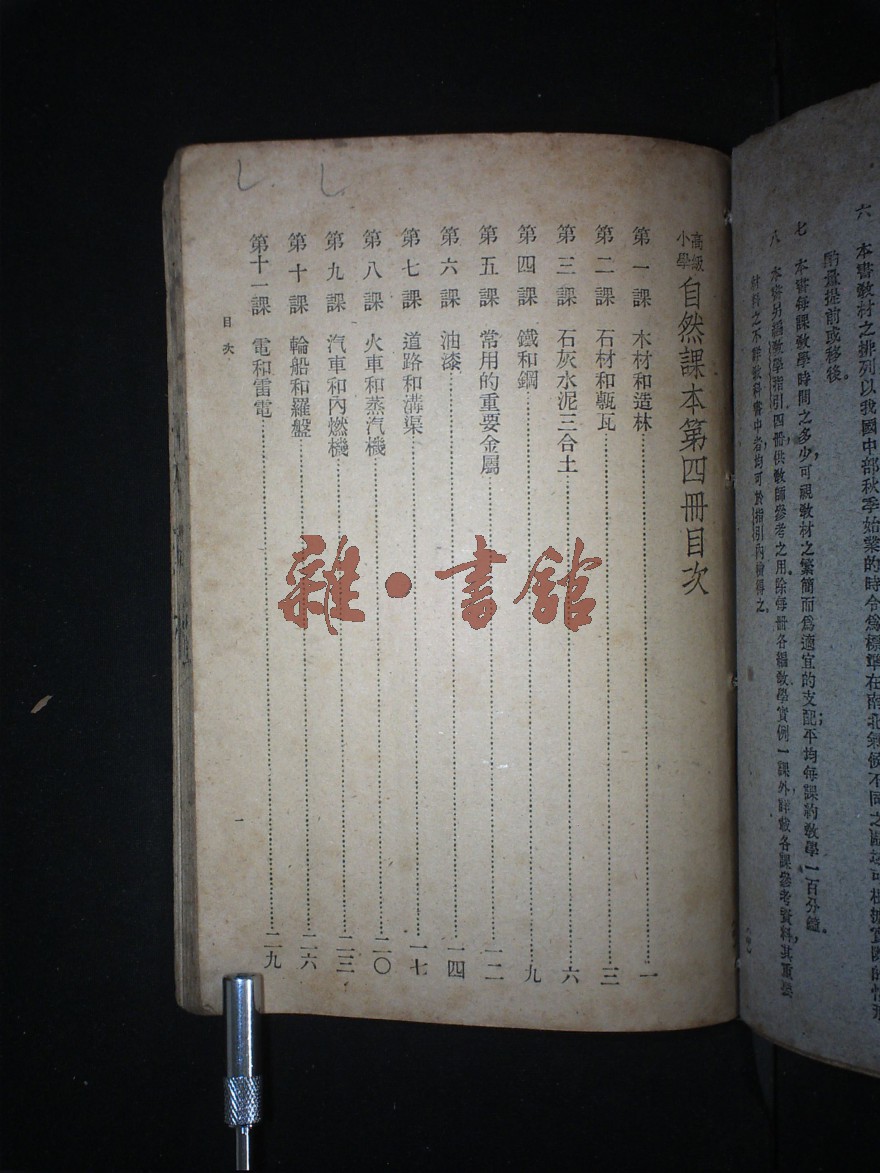 六　本書教材之排列以我國中部秋季始業的時令為標準在南北氣候不同之區
酌量提前或移後。
七　本書每課教學時間之多少，可視教材之繁簡而為適宜的支配；平均每課約教學一百分鐘。
八　本書另編教學指引四冊，供教師參考之用。除每冊各編教學實例一課外，詳載各課參考資料，其重要
材料之不詳教科書中者，均可於指引內檢得之。
高級小學 自然課本第四冊目次
第一課　木材和造林……一
第二課　石材和甎瓦……三
第三課　石灰水泥三合土……六
第四課　鐵和鋼……九
第五課　常用的重要金屬……一二
第六課　油漆……一四
第七課　道路和溝渠……一七
第八課　火車和蒸汽機……二〇
第九課　汽車和內燃機……二三
第十課　輪船和羅盤……二六
第十一課　電和雷電……二九
目次
一
雜·書館